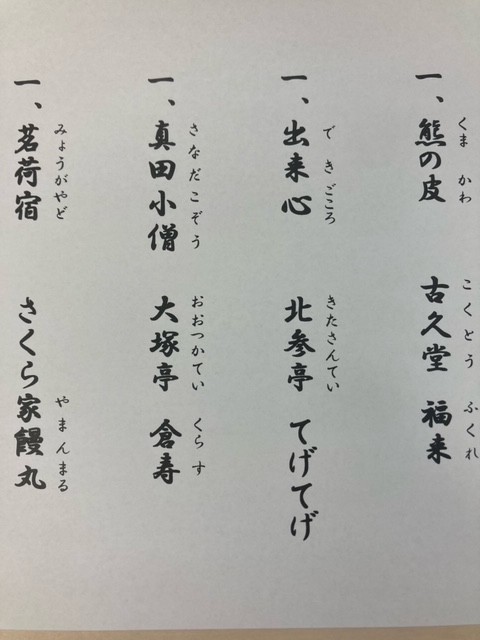 一、熊の皮 古久堂 福来
くま かわ こくとう ふくれ
一、出来心 北参亭 てげてげ
できごころ きたさんてい
一、真田小僧 大塚亭 倉寿
さなだこぞう おおつかてい くらす
一、茗荷宿 さくら家饅丸
みょうがやど やまんまる